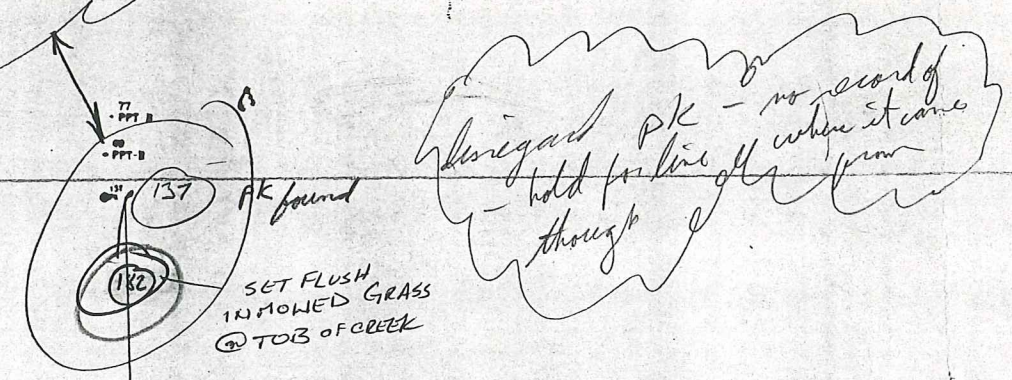 77
PPT-B
PPT-B
137
137
PK found
132
SET FLUSH
IN MOWED GRASS
@ TOB OF CREEK
disregard pk - no record of
where it came
from
- hold for line
though